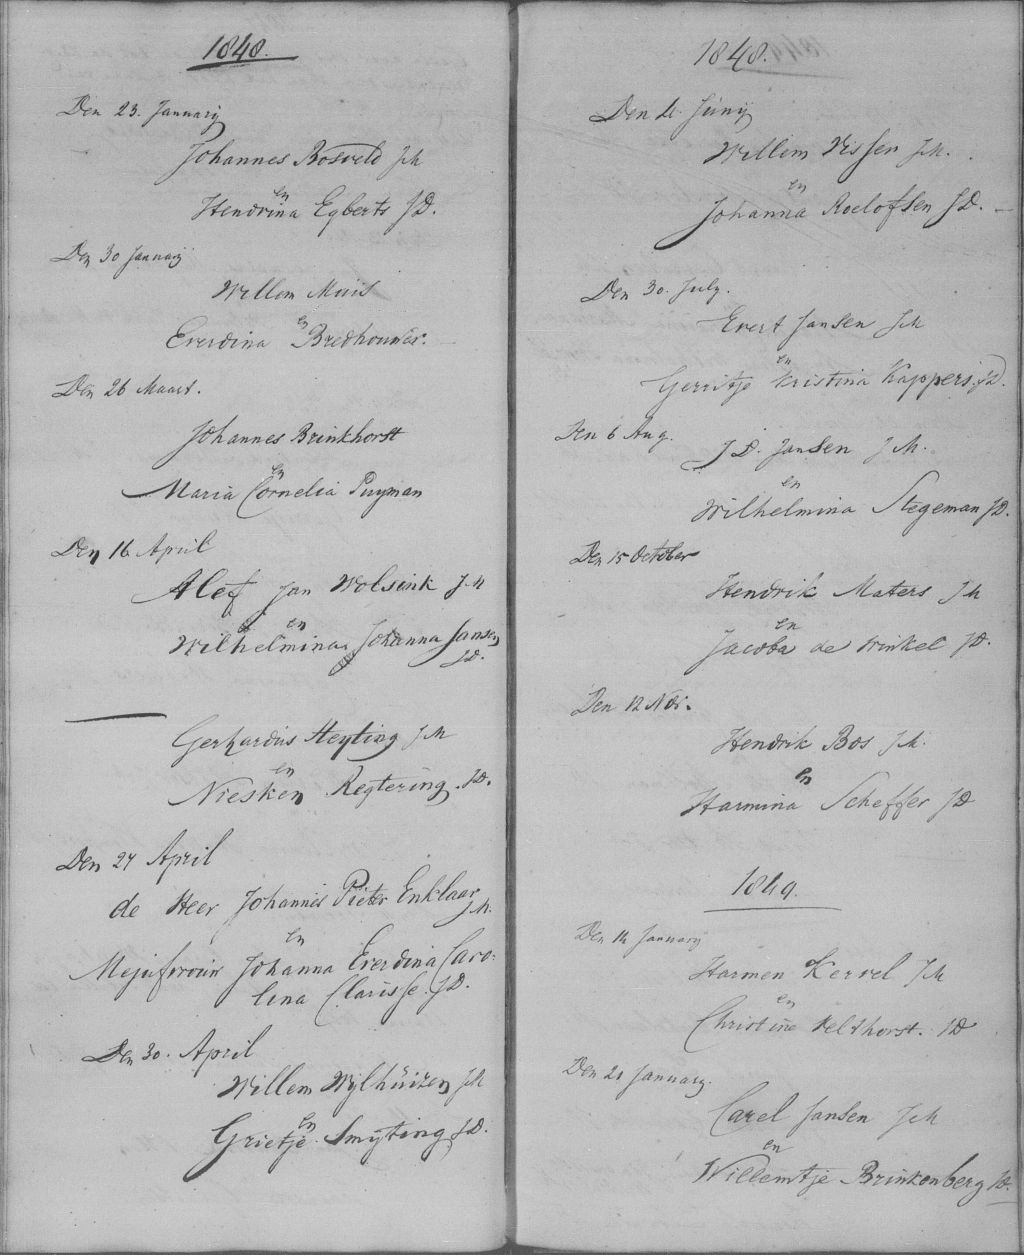 1848.
Den 23. Januarij
Johannes Bosveld J.M
en
Hendrina Egberts J.D.
Den 30 Januarij
Willem Muis
en
Everdina Bredhouwer.
Den 26 Maart.
Johannes Brinkhorst
en
Maria Cornelia Puyman
Den 16 April
Alef Jan Wolsink J.M
en
Wilhelmina Johanna Jansen
J.D.
Gerhardus Heyting J.M
en
Niesken Regtering. J.D.
Den 24 April
de Heer Johannes Pieter Enklaar
J.M.
en
Mejufvrouw Johanna Everdina Caro-
lina Clarisse. J.D.
Den 30. April
Willem Wylhuizen J.M
en
Grietje Smyting J.D.
1848.
Den 4. Junij
Willem Vissen J.M.
en
Johanna Roelofsen J.D.
Den 30. July.
Evert Jansen J.M
en
Gerritje Kristina Kappers. J.D.
Den 6 Aug.
J. D. Jansen J.M.
en
Wilhelmina Stegeman J.D.
Den 15 October
Hendrik Maters J.M
en
Jacoba de Winkel J.D.
Den 12 Nov.
Hendrik Bos J.M.
en
Harmina Scheffer J.D
1849.
Den 14 January
Harmen Kervel J.M
en
Christine Velthorst. J.D
Den 21 January.
Carel Jansen J.M
en
Willemtje Brinkenberg J.D.